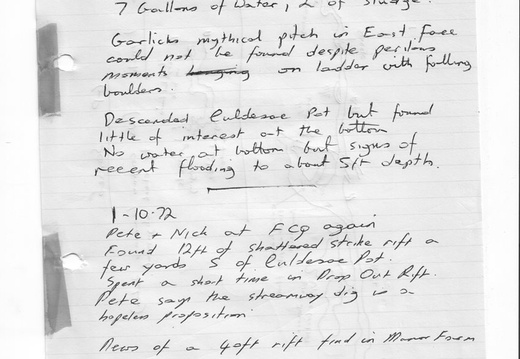 7 Gallons of water, 2 of sludge.
Garlicks mythical pitch in East Face
could not be found despite perilous
moments hanging on ladder with falling
boulders.
Descended Culdesac Pot but found
little of interest at the bottom
No water at bottom but signs of
recent flooding to about 5ft depth.
1-10-72
Pete + Nick at FCQ again
Found 12ft of shattered strike rift a
few yards S of Culdesac Pot.
Spent a short time in Drop Out Rift.
Pete says the streamway dig is a
hopeless proposition.
News of a 40ft rift find in Manor Farm